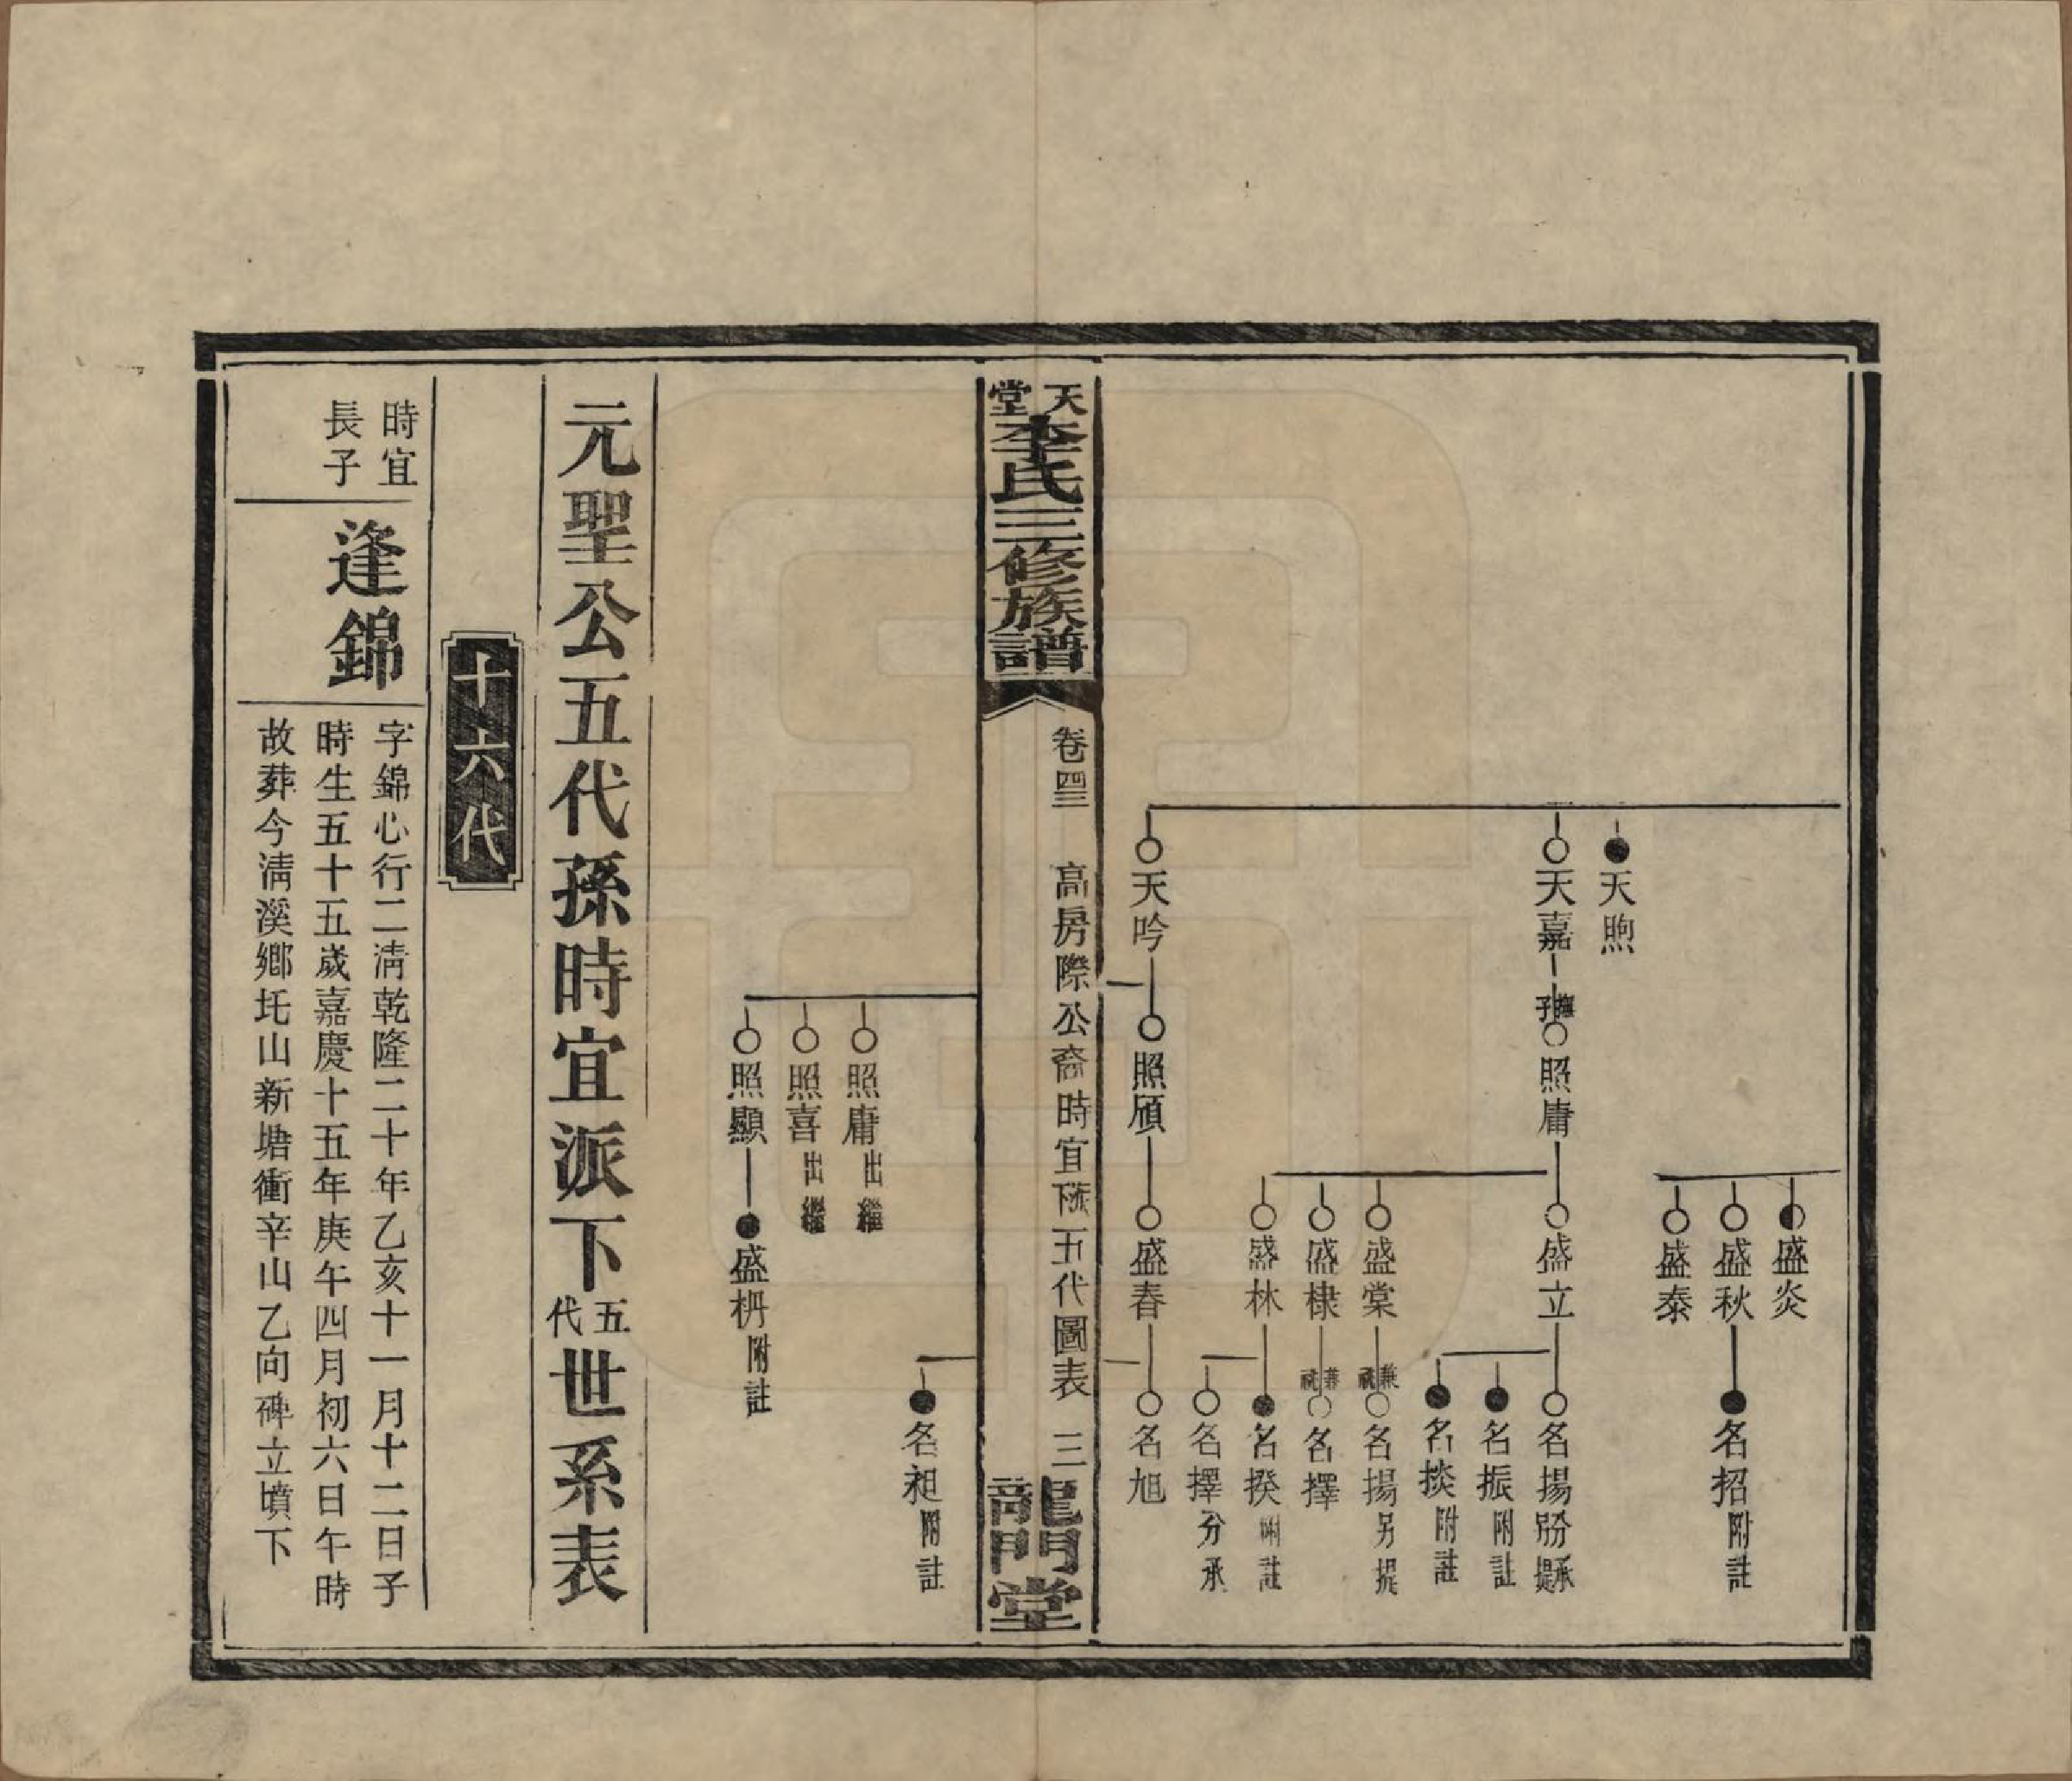 盛炎
盛秋
名招附註
盛泰
天煦
天嘉
撫子
照庸
盛立
名揚另提分承
名振附註
名掞附註
盛棠
兼祧
名揚另提
盛棣
兼祧
名擇
盛林
名揆附註
名擇分承
天吟
照頎
盛春
名旭
天堂李氏三修族譜
卷四三 高房際公裔時宜派下五代圖表 三
龍門堂
名昶附註
照庸出繼
照喜出繼
照顯
盛枬附註
元聖公五代孫時宜派下五代世系表
十六代
時宜長子
逢錦
字錦心行二清乾隆二十年乙亥十一月十二日子
時生五十五歲嘉慶十五年庚午四月初六日午時
故葬今清溪鄉圫山新塘衝辛山乙向碑立墳下